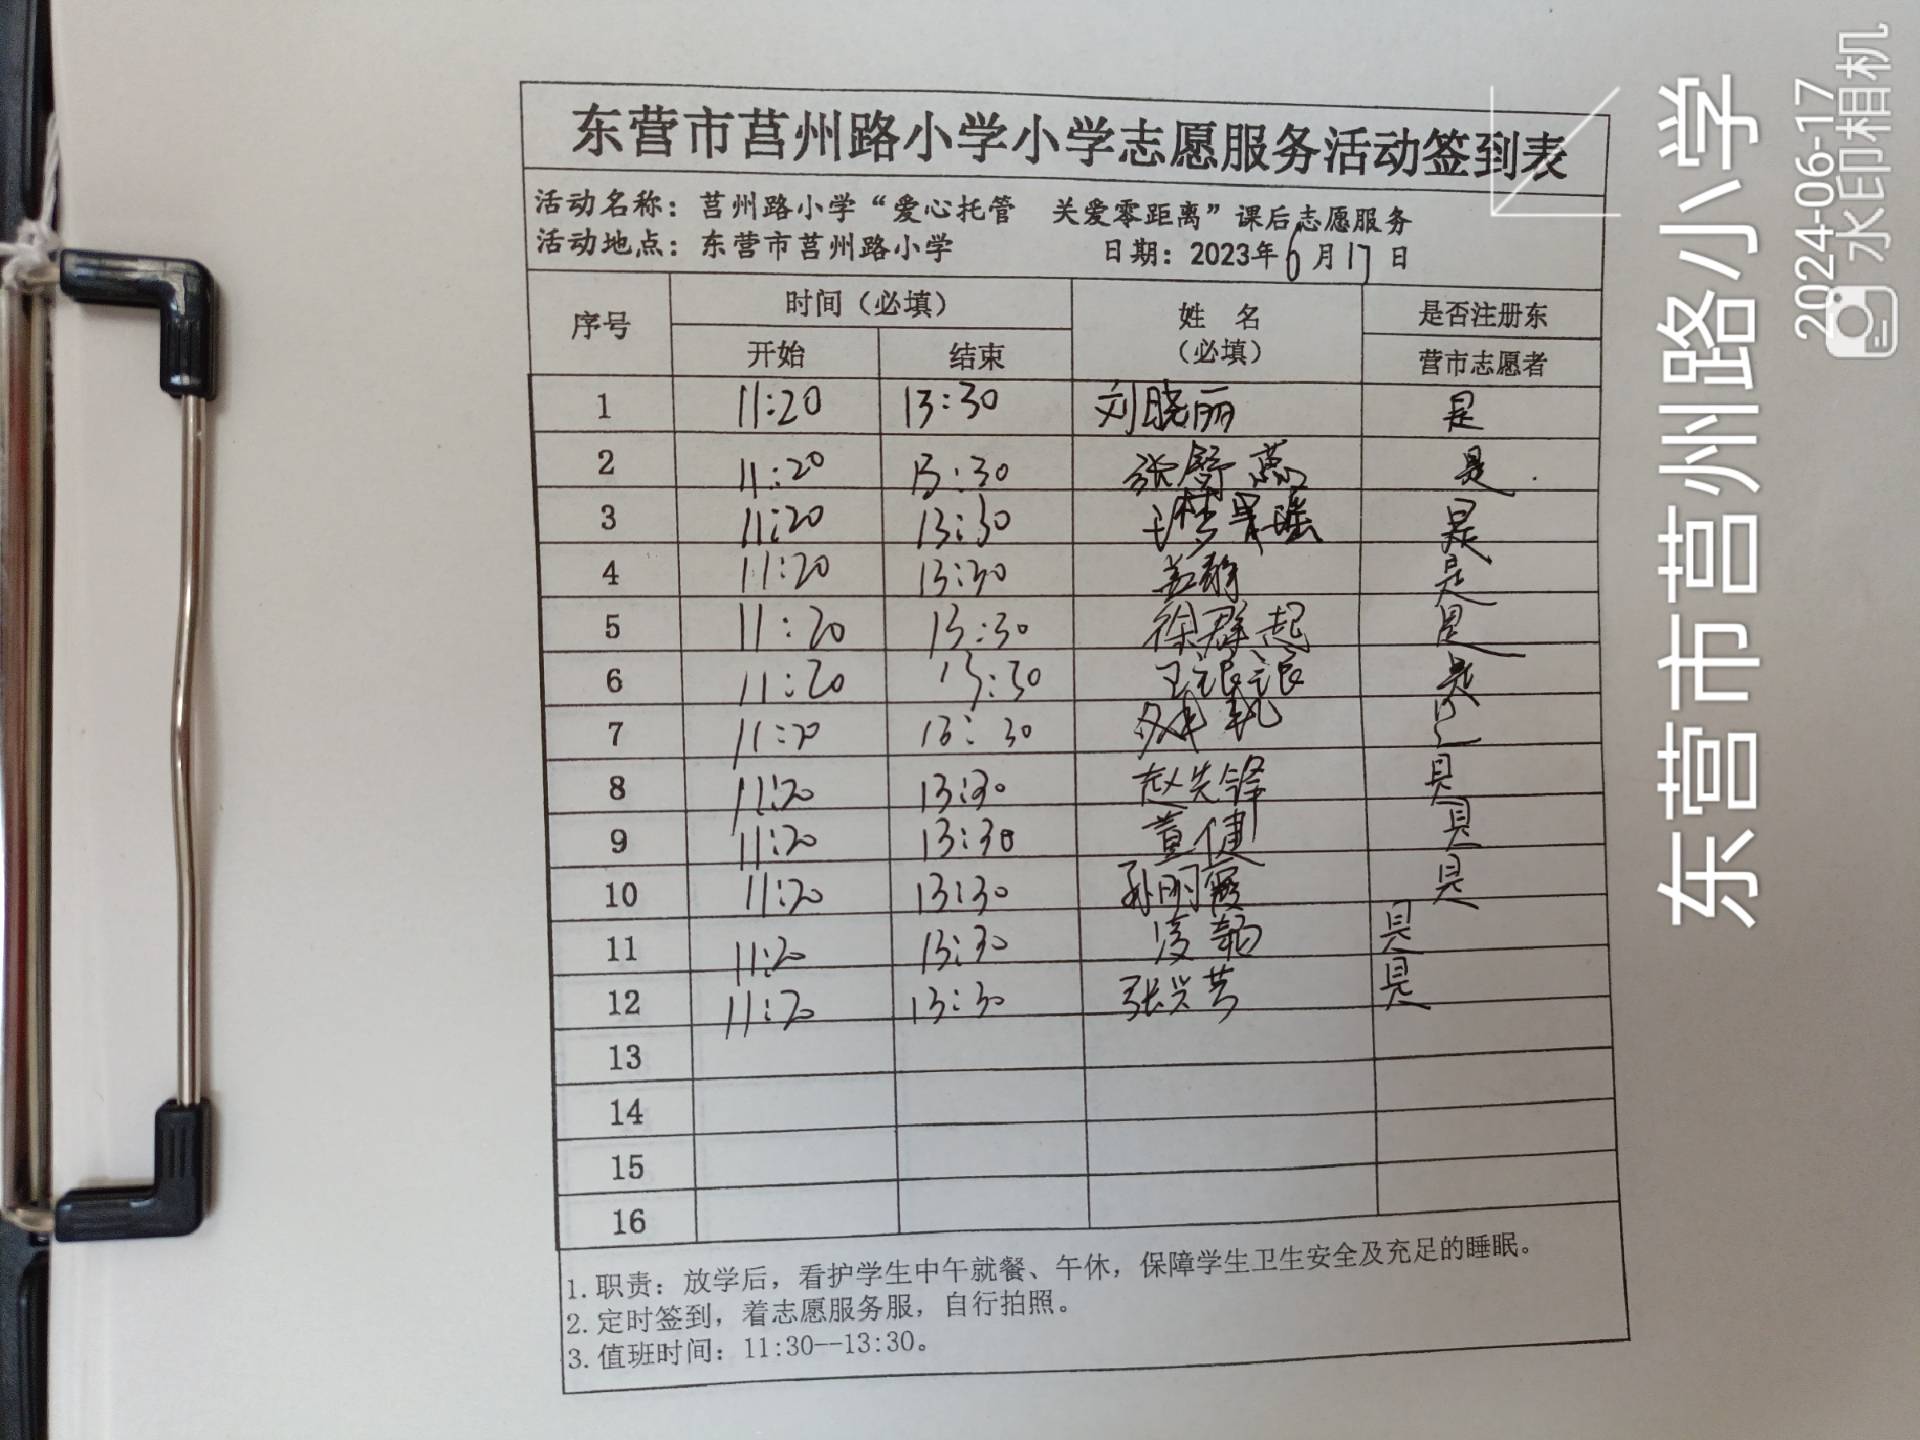 东营市莒州路小学小学志愿服务活动签到表
活动名称：莒州路小学“爱心托管 关爱零距离”课后志愿服务
活动地点：东营市莒州路小学 日期：2023年6月17日
序号 时间（必填） 姓 名（必填） 是否注册东营市志愿者
开始 结束
1 11:20 13:30 刘晓丽 是
2 11:20 13:30 张舒燕 是
3 11:20 13:30 是
4 11:20 13:30 盖静 是
5 11:20 13:30 徐群起 是
6 11:20 13:30 王浪浪 是
7 11:20 13:30
8 11:20 13:30 赵先锋 是
9 11:20 13:30 董健 是
10 11:20 13:30 孙明霞 是
11 11:20 13:30 是
12 11:20 13:30 张兴芳 是
13
14
15
16
1.职责：放学后，看护学生中午就餐、午休，保障学生卫生安全及充足的睡眠。
2.定时签到，着志愿服务服，自行拍照。
3.值班时间：11:30--13:30。
东营市莒州路小学
2024-06-17
水印相机